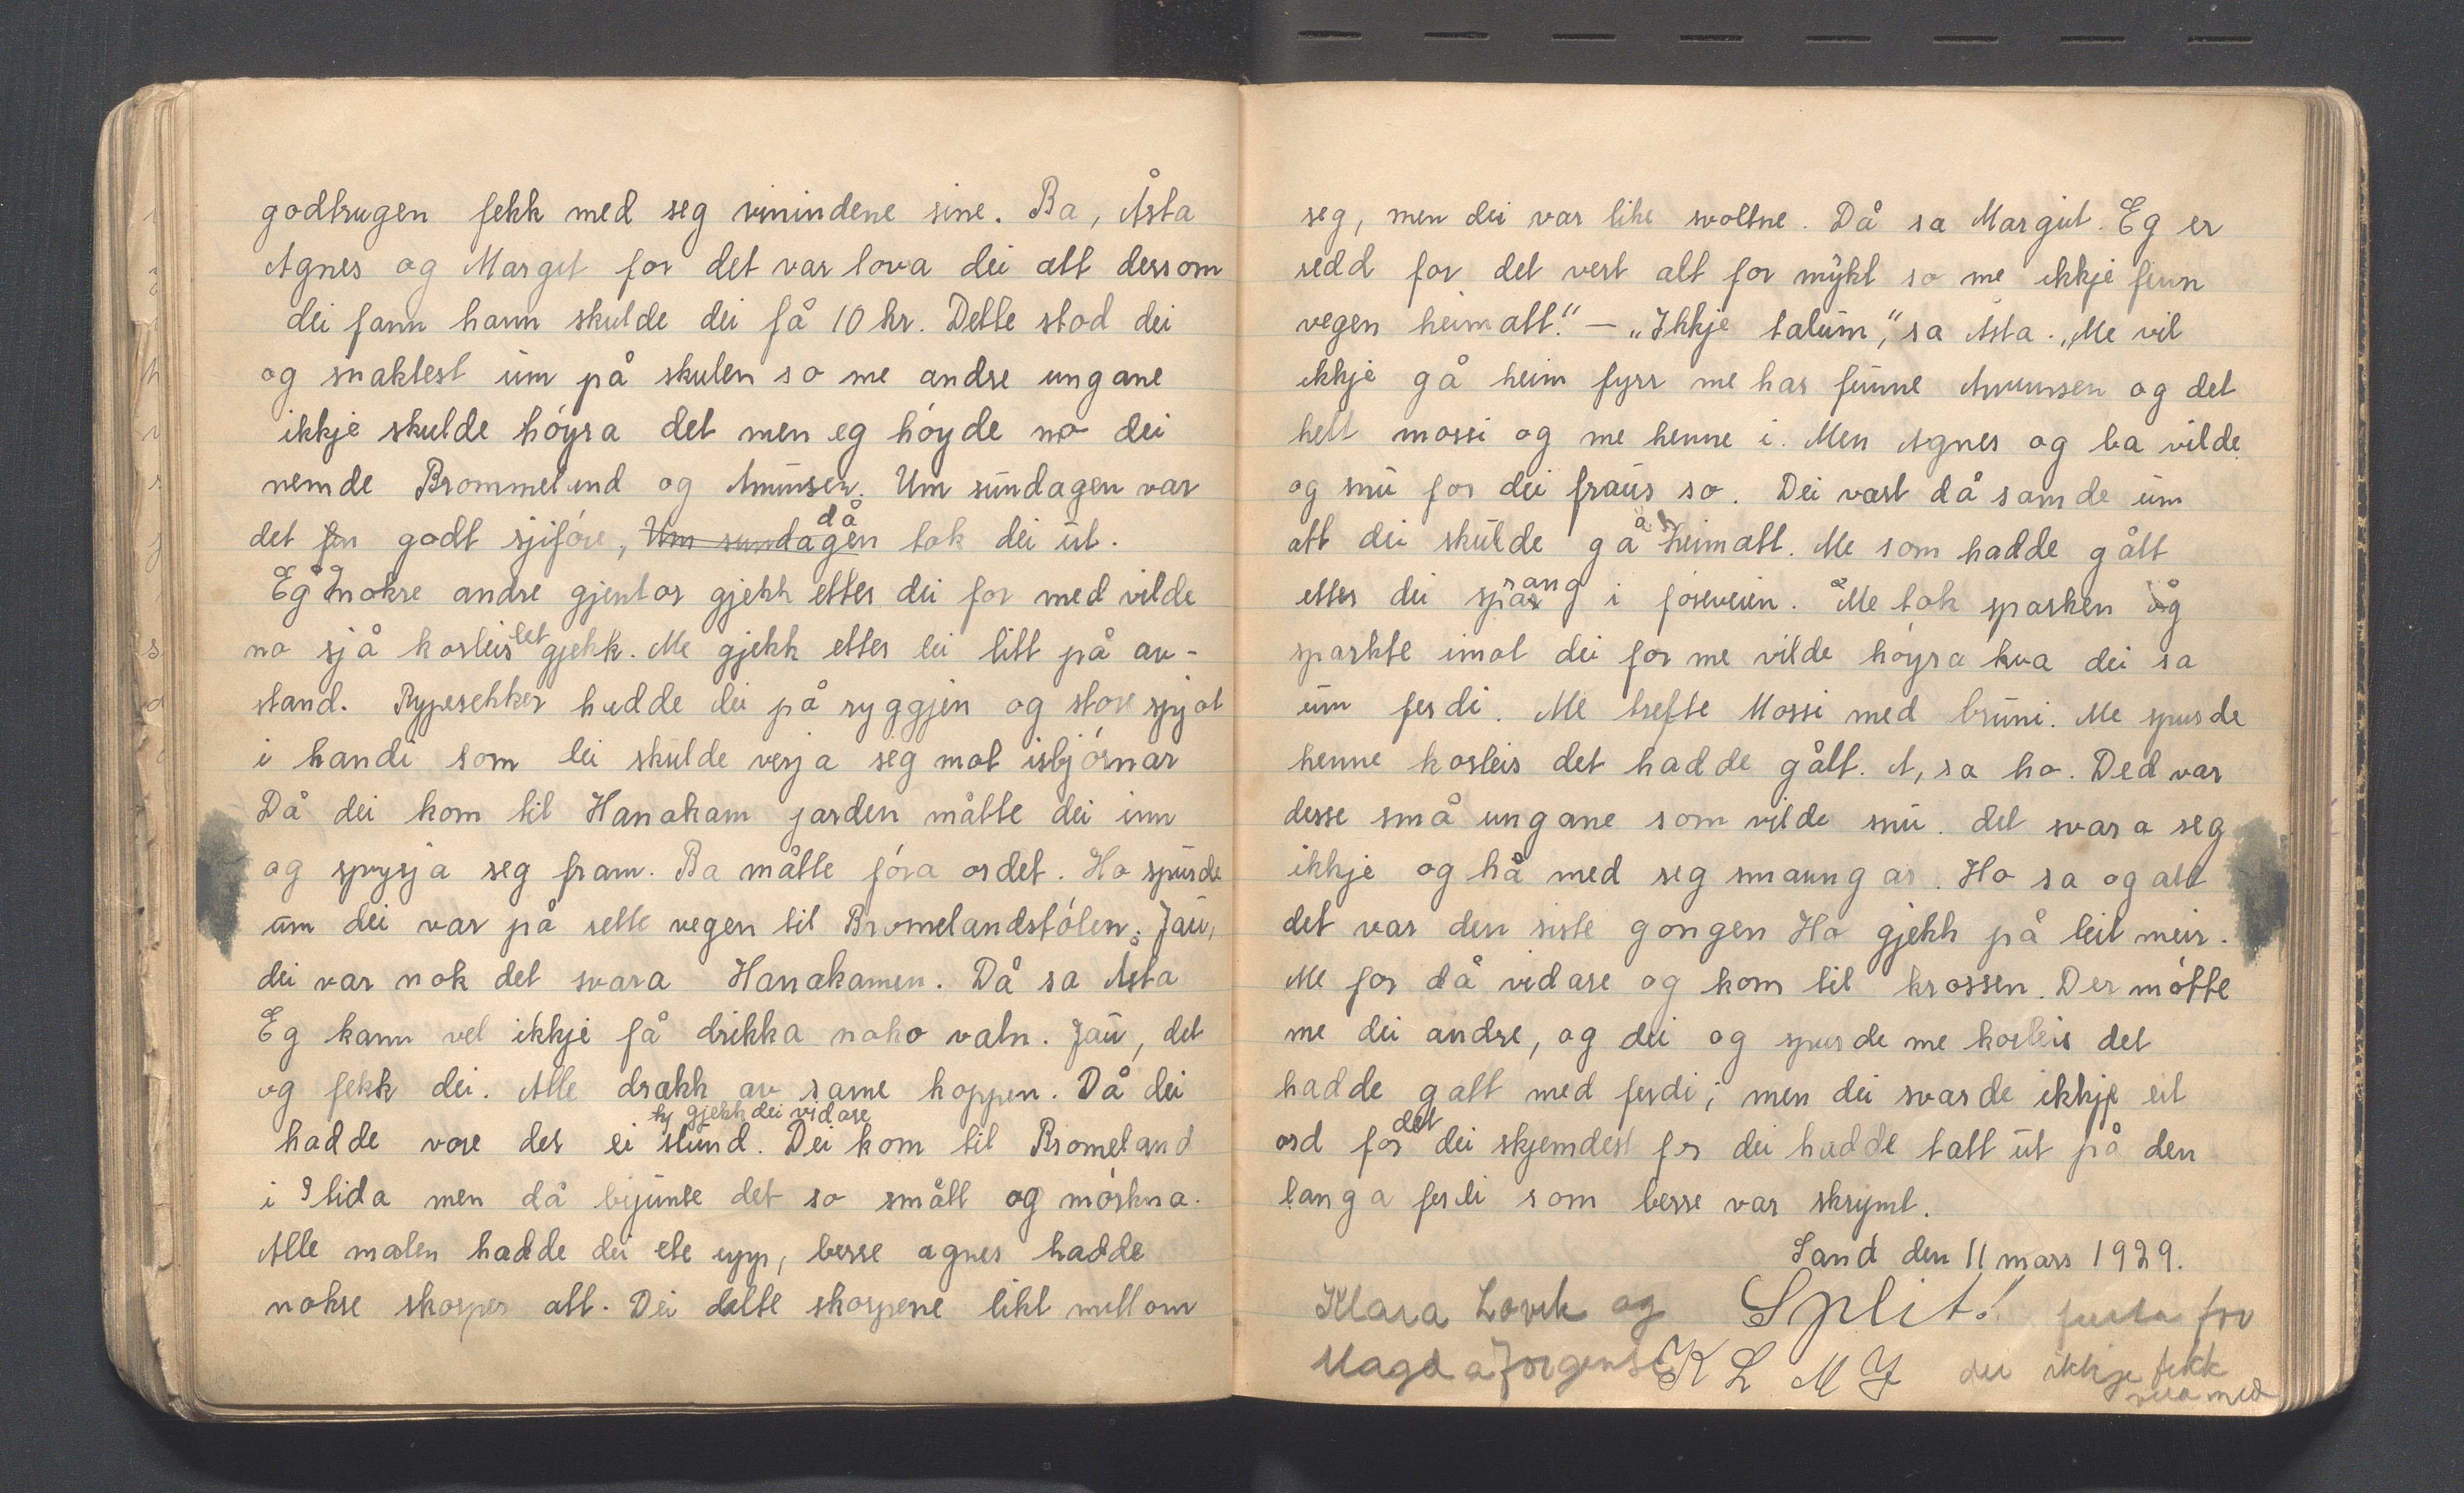 godtrugen fekk med seg vinindene sine. Ba, Åsta
Agnes og Margit for det var lova dei att dersom
dei fann hann skulde dei få 10 kr. Dette stod dei
og snaktest um på skulen so me andre ungane
ikkje skulde höyra det men eg höyde no dei
nemde Brommeland og Amunsen. Um sundagen var
det godt sjiföre, Um sundagen då tok dei ut.
Eg og nokre andre gjentor gjekk etter dei for med vilde
no sjå korleis det gjekk. Me gjekk etter dei litt på av-
stand. Rypesekker hadde dei på ryggjen og store spjot
i handi som dei skulde verja seg mot isbjörnar
Då dei kom til Hanakam garden måtte dei inn
og spysja seg fram. Ba måtte föra ordet. Ho spurde
um dei var på rette vegen til Bromelandstölen. Jau,
dei var nok det svara Hanakamen. Då sa Åsta
Eg kann vel ikkje få drikka noko vatn. Jau, det
og fekk dei. Alle drakk av same koppen. Då dei
hadde vore der ei stund gjekk dei vidare. Dei kom til Bromeland
i 9 tida men då bijunte det so smått og mörkna.
Alle maten hadde dei ete upp, berre agnes hadde
nokre skorper att. Dei delte skorpene likt millom
seg, men dei var like svoltne. Då sa Margit. Eg er
redd for det vert alt for mykt so me ikkje finn
vegen heimatt." – "Ikkje talum," sa Åsta. "Me vil
ikkje gå heim fyrr me har funne Amunsen og det
helt mossi og me henne i. Men Agnes og ba vilde
og snu for dei fraus so. Dei vart då samde um
att dei skulde gå heimatt. Me som hadde gått
etter dei sprang i foreveien. Me tok sparken og
sparkte imot dei for me vilde höyra kva dei sa
um ferdi. Me trefte Mossi med bruni. Me spurde
henne korleis det hadde gått. A, sa ho. Ded var
desse små ungane som vilde snu. det svara seg
ikkje og hå med seg smaungar. Ho sa og att
det var den siste gongen Ho gjekk på leit meir.
Me for då vidare og kom til krossen. Der mötte
me dei andre, og dei og spurde me korleis det
hadde gatt med ferdi; men dei svarde ikkje eit
ord for det dei skjemdest for dei hadde tatt ut på den
langa ferdi som berre var skrymt.
Sand den 11 mars 1929.
Klara Lovik og Split! for
Magda Jorgensen K L M J dei ikkje fekk
vera med